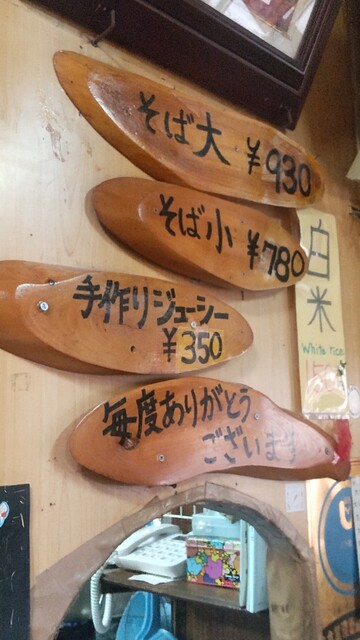 そば大 ¥930
そば小 ¥780
手作りジューシー
¥350
毎度ありがとう
ございます
白米
White rice